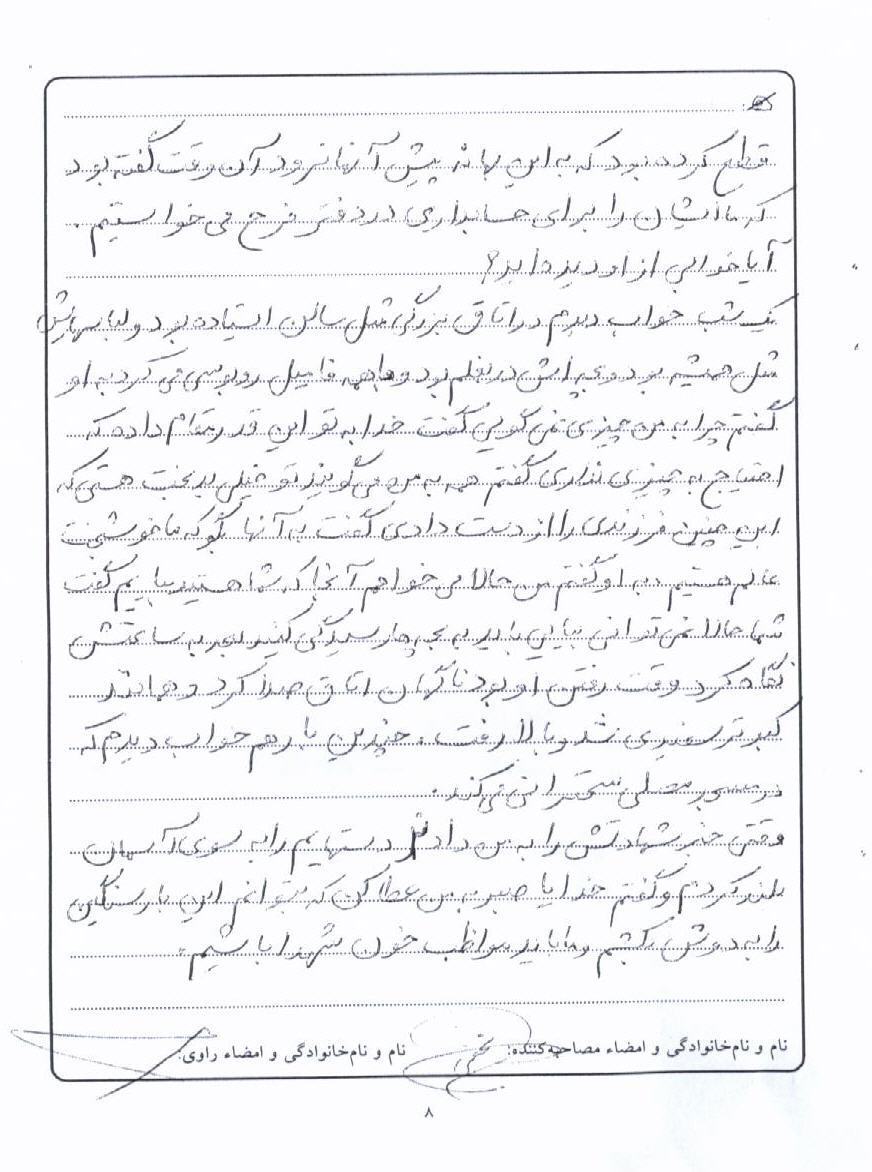 قطع کرده بود که به این بهانه پیش آنها نرود آن وقت گفته بود
که ما ایشان را برای حسابداری در دفتر فرح می خواستیم.
آیا خوابی از او دیده اید؟
یک شب خواب دیدم در اتاق بزرگی مثل سالن ایستاده بود و لباسهایش
مثل همیشه بود و بچه اش در بغلم بود و با همه فامیل روبوسی می کرد به او
گفتم چرا به من چیزی نمی گویی گفت خدا به تو این قدر مقام داده که
احتیاج به چیزی نداری گفتم همه به من می گویند تو خیلی بدبخت هستی که
این چنین فرزندی را از دست دادی گفت به آنها بگو که ما خوشبخت
عالم هستیم. به او گفتم من حالا می خواهم آنجا که شما هستید بیایم گفت
شما حالا نمی توانی بیایی باید به بچه ها رسیدگی کنید بعد به ساعتش
نگاه کرد وقت رفتن او بود ناگهان اتاق صدا کرد و همانند
کبوتر سفیدی شد و بالا رفت. چندین بار هم خواب دیدم که
در مسجد مصلی سخنرانی می کند.
وقتی خبر شهادتش را به من دادند دستهایم را به سوی آسمان
بلند کردم و گفتم خدایا صبر به من عطا کن که بتوانم این بار سنگین
را به دوش بکشم و ما باید مواظب خون شهدا باشیم.
نام و نام‌خانوادگی و امضاء مصاحبه‌کننده:
نام و نام‌خانوادگی و امضاء راوی:
۸